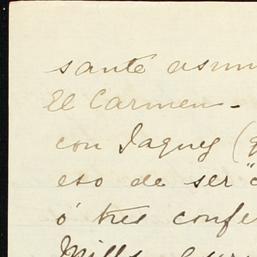 sante asun
El Carmen -
con Jaques (q
eso de ser "c
ó tres confe
Mills